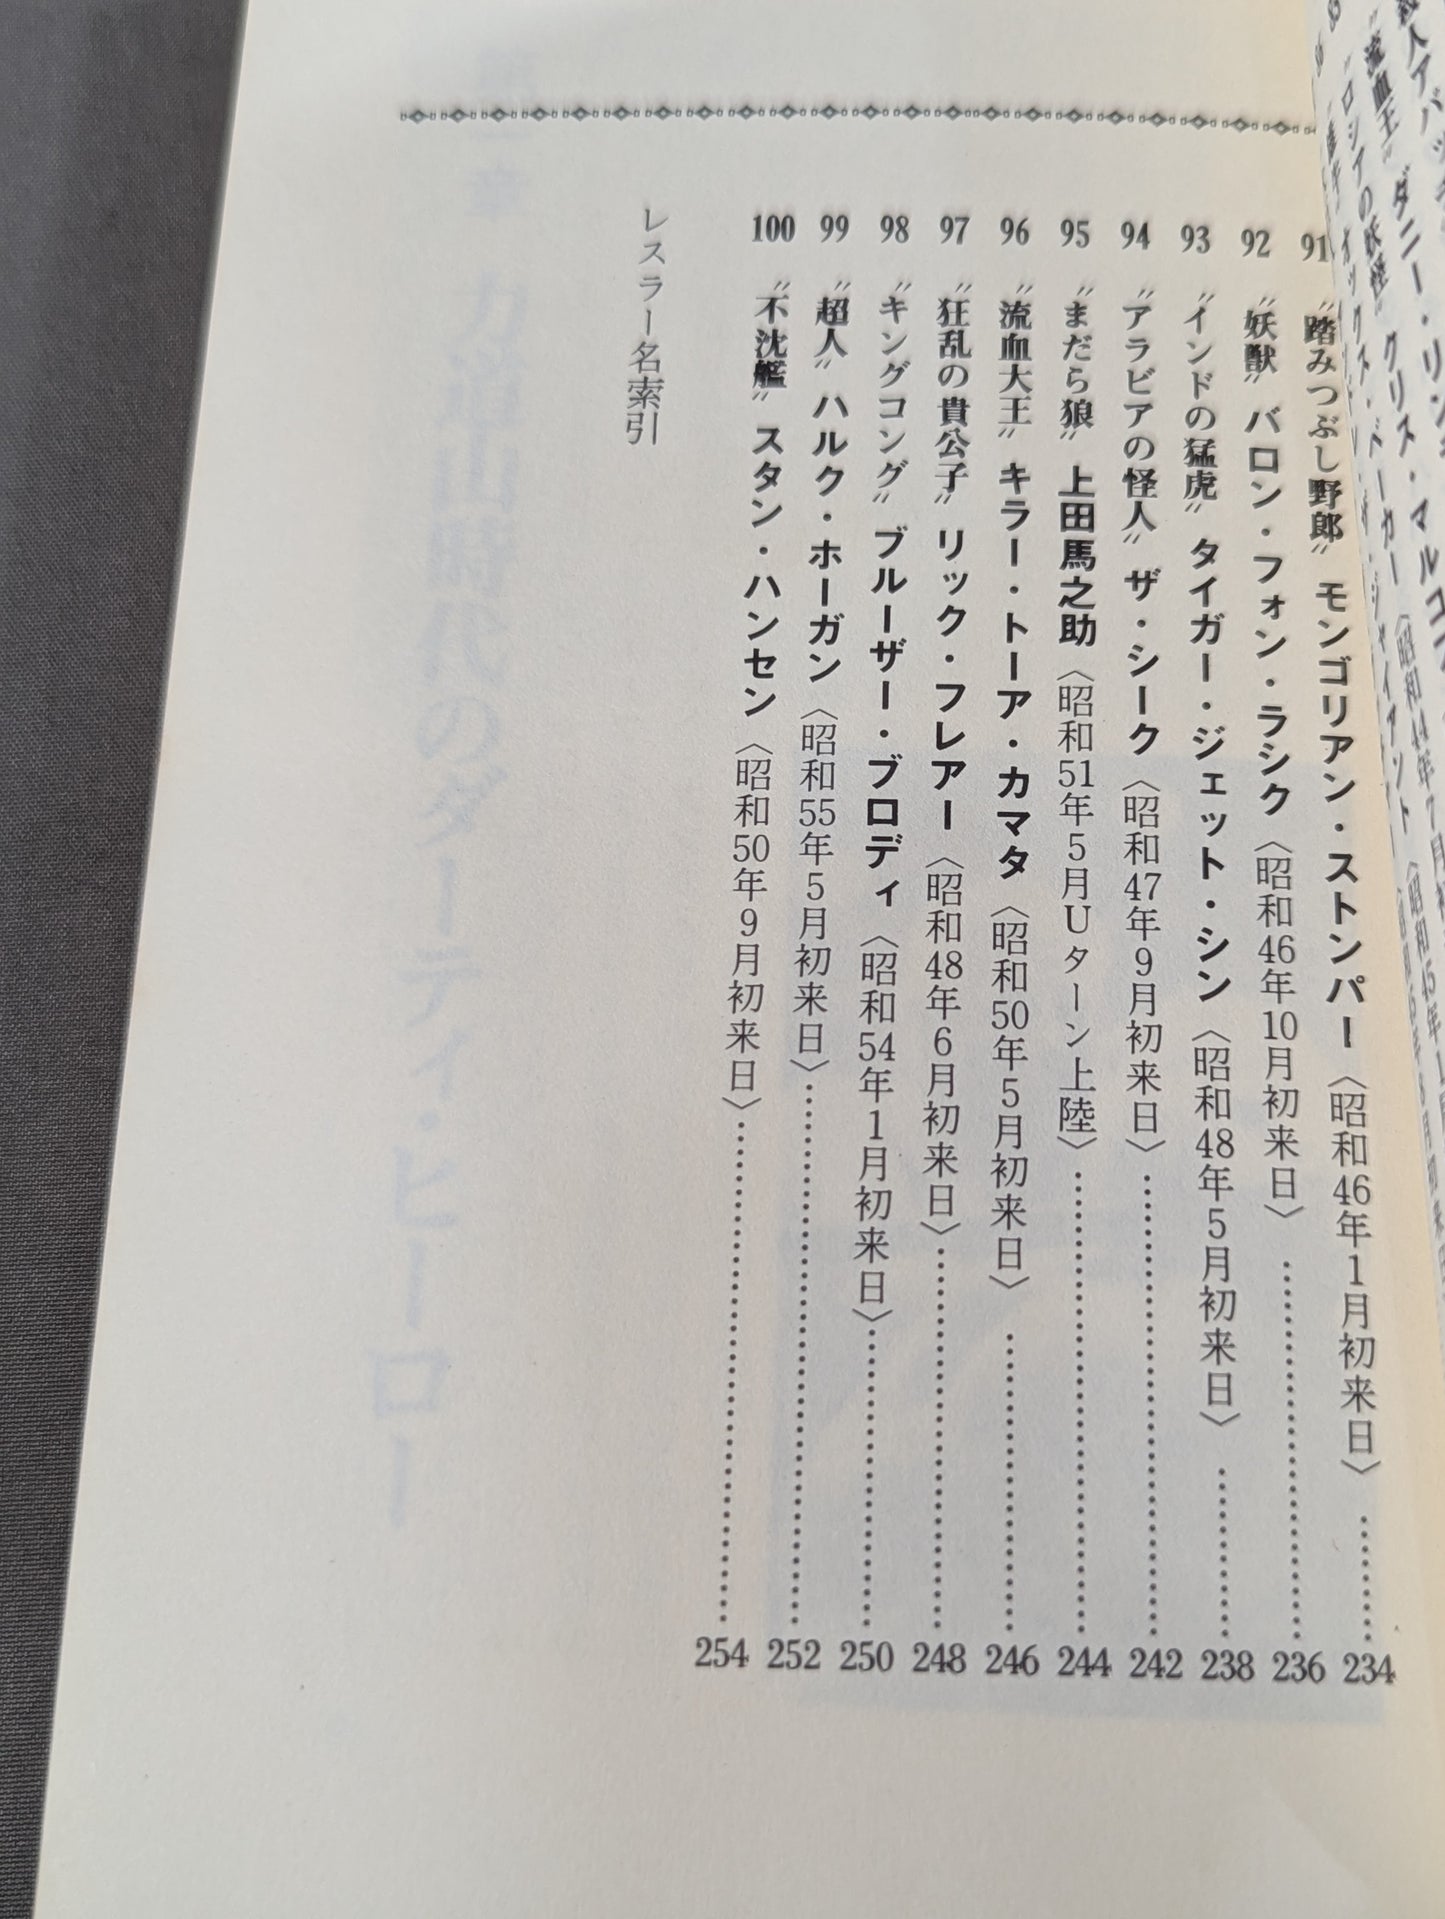 91 〝踏みつぶし野郎〟 モンゴリアン・ストンパー〈昭和46年1月初来日〉……234
92 〝妖獣〟 バロン・フォン・ラシク〈昭和46年10月初来日〉……236
93 〝インドの猛虎〟 タイガー・ジェット・シン〈昭和48年5月初来日〉……238
94 〝アラビアの怪人〟 ザ・シーク〈昭和47年9月初来日〉……242
95 〝まだら狼〟 上田馬之助〈昭和51年5月Uターン上陸〉……244
96 〝流血大王〟 キラー・トーア・カマタ〈昭和50年5月初来日〉……246
97 〝狂乱の貴公子〟 リック・フレアー〈昭和48年6月初来日〉……248
98 〝キングコング〟 ブルーザー・ブロディ〈昭和54年1月初来日〉……250
99 〝超人〟 ハルク・ホーガン〈昭和55年5月初来日〉……252
100 〝不沈艦〟 スタン・ハンセン〈昭和50年9月初来日〉……254
レスラー名索引